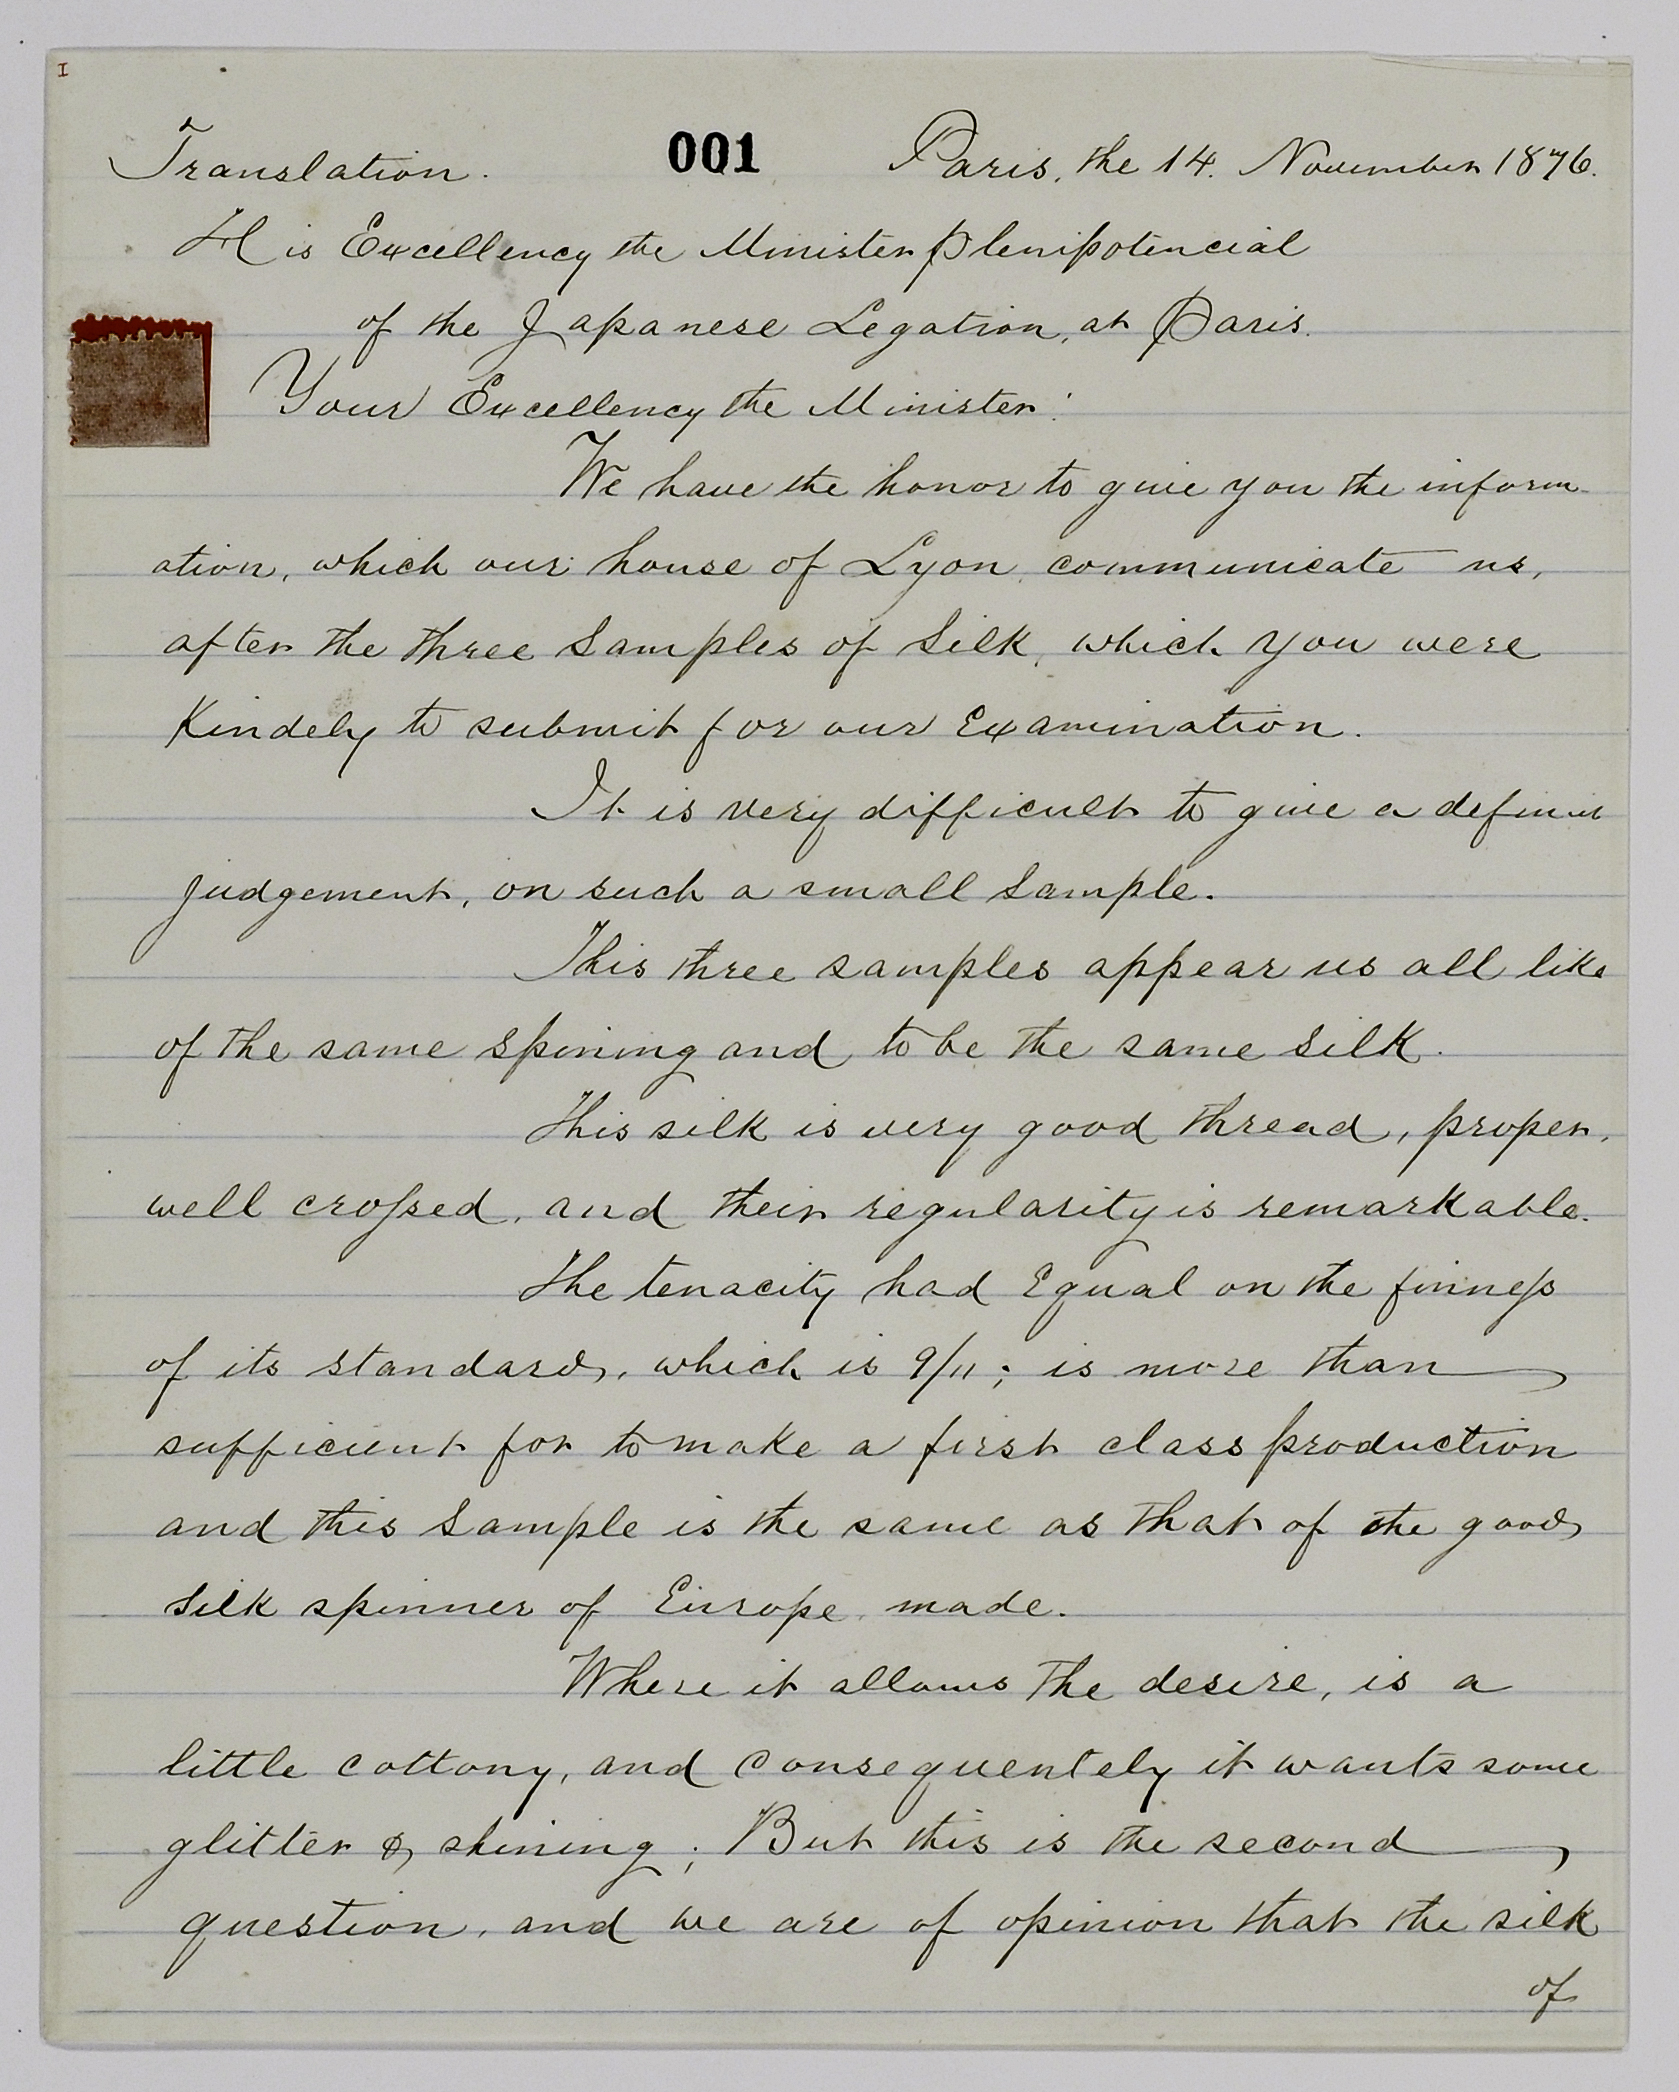 I
Translation. 001 Paris, the 14. November 1876.
His Excellency the Minister Plenipotencial
of the Japanese Legation, at Paris.
Your Excellency the Minister:
We have the honor to give you the inform-
ation, which our house of Lyon, communicate us,
after the three samples of silk, which you were
Kindely to submit for our Examination.
It is very difficult to give a definit
judgement, on such a small sample.
This three samples appear us all like
of the same spining and to be the same silk.
This silk is very good thread, proper,
well crossed, and their regularity is remarkable.
The tenacity had Equal on the finness
of its standard, which is 9/11; is more than
sufficient for to make a first class production
and this sample is the same as that of the good
silk spinner of Europe, made.
Where it allows the desire, is a
little cottony, and consequentely it wants some
glitter & shining; But this is the second
question, and we are of opinion that the silk
of